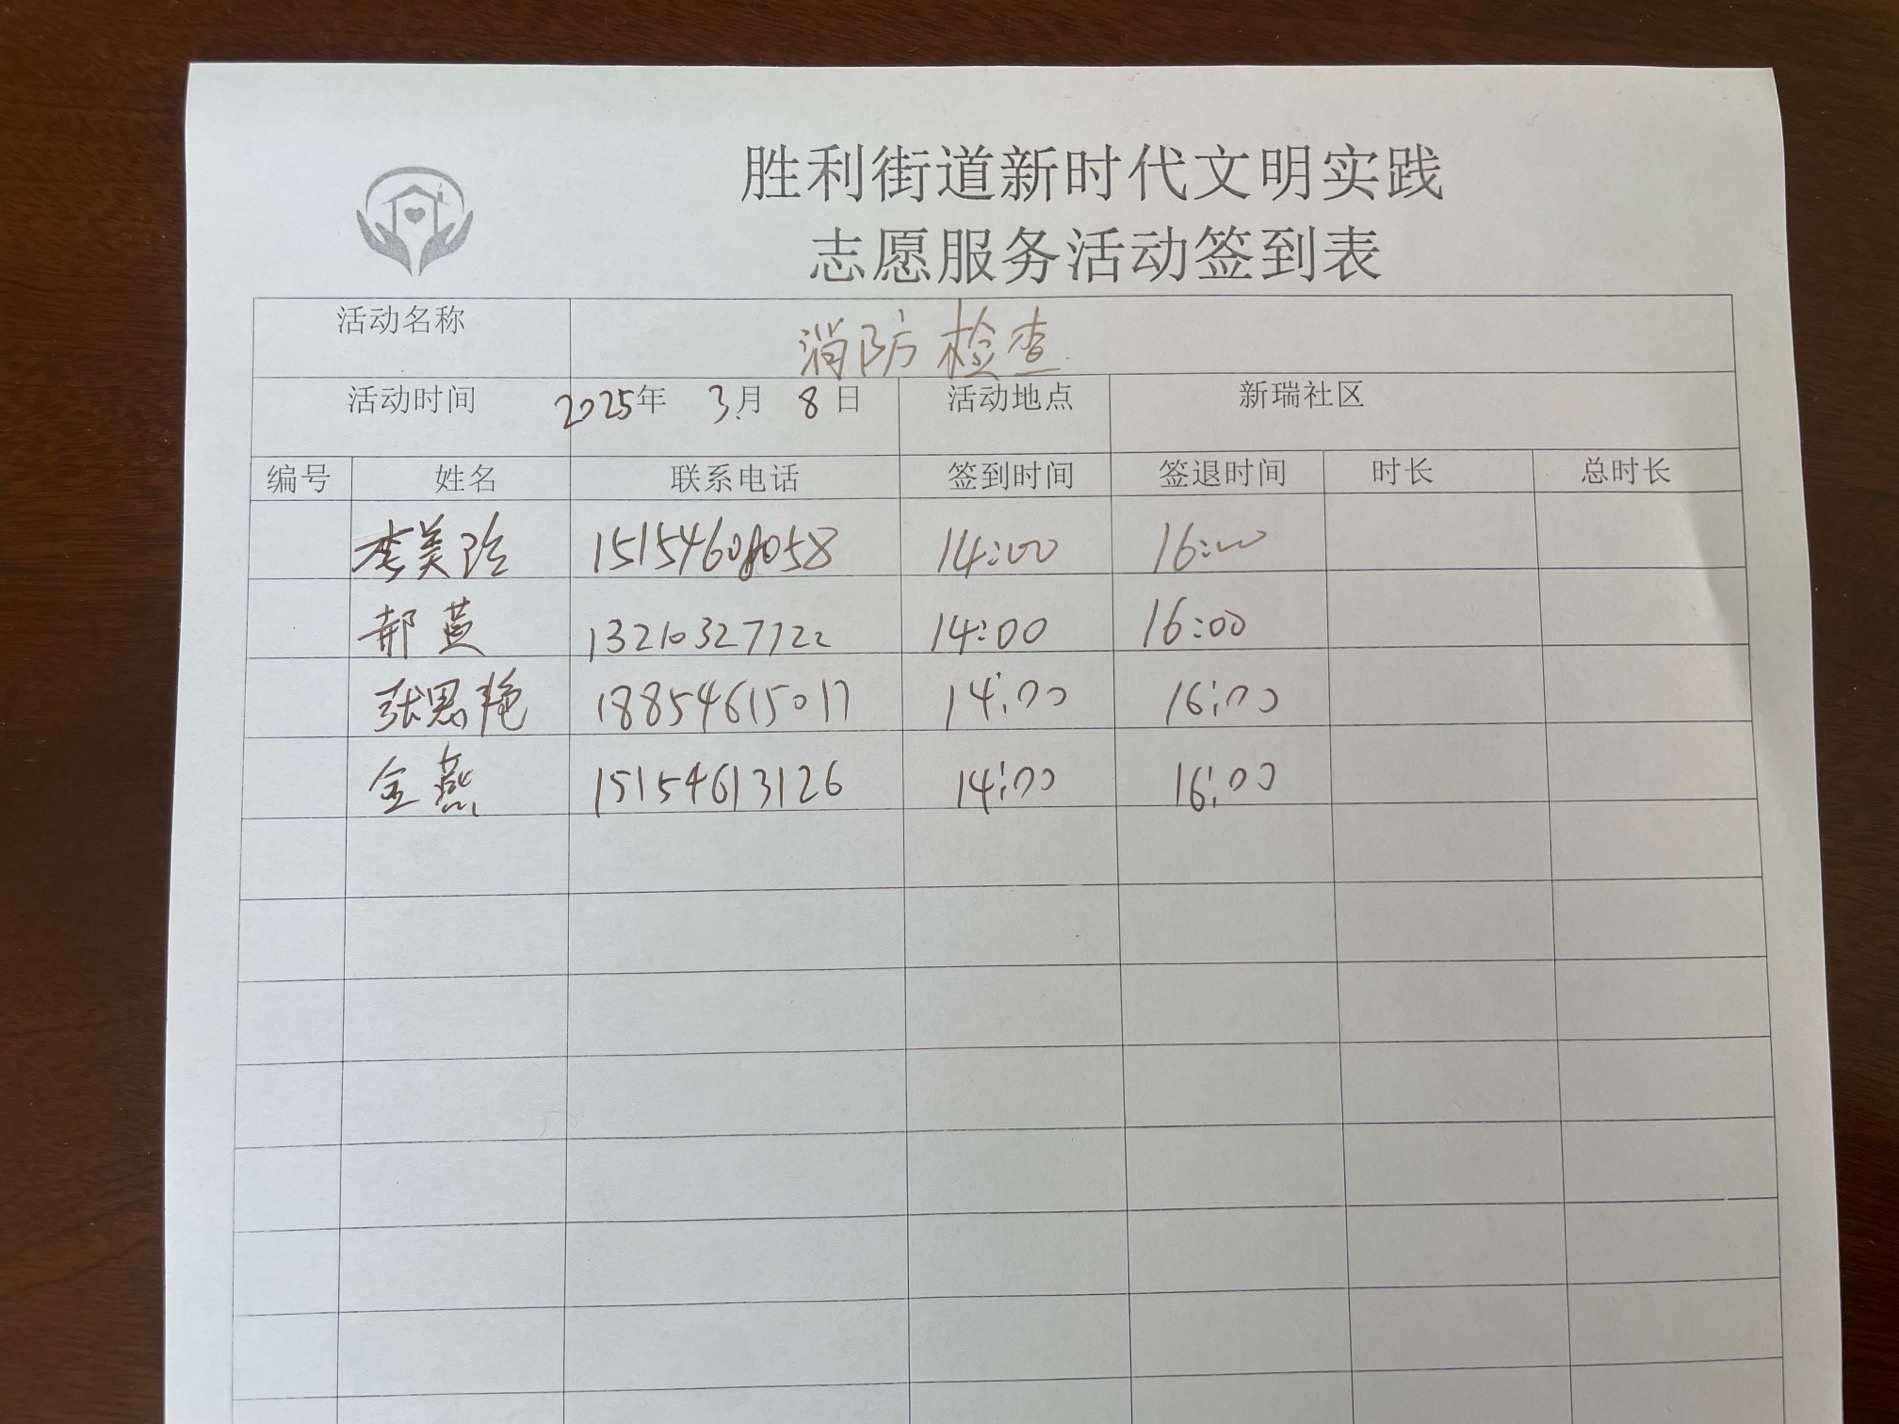 胜利街道新时代文明实践
志愿服务活动签到表
活动名称 消防检查
活动时间 2025年 3月 8日 活动地点 新瑞社区
编号 姓名 联系电话 签到时间 签退时间 时长 总时长
李美玲 14:00 16:00
郝 13210327122 14:00 16:00
张思艳 18854615017 14:00 16:00
金燕 15154613126 14:00 16:00